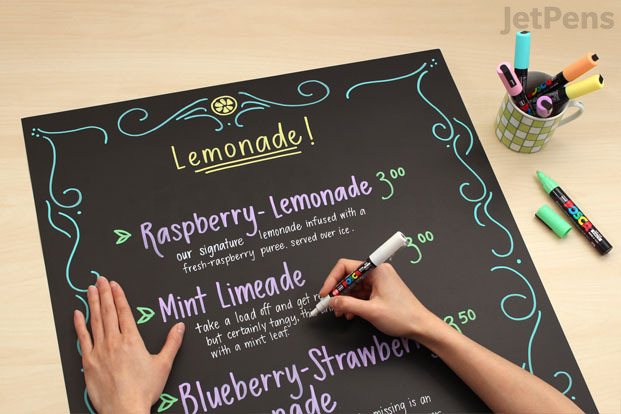 JetPens
Lemonade!
Raspberry-Lemonade 3.00
our signature lemonade infused with a
fresh-raspberry puree. served over ice.
Mint Limeade 3.00
take a load off and get
but certainly tangy,
with a mint leaf.
Blueberry-Strawberry 3.50
missing is an
POSCA
POSCA